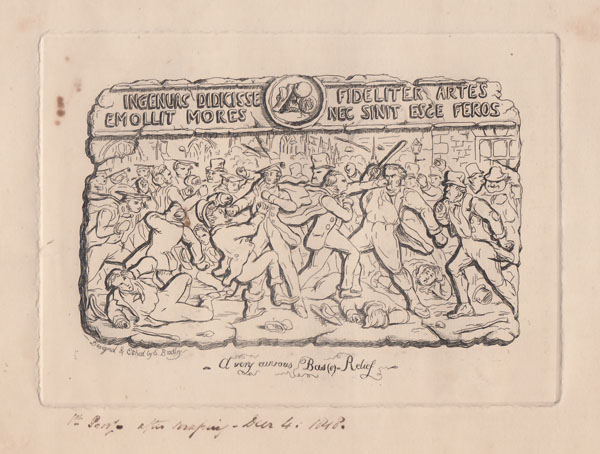 INGENUAS DIDKISSE FIDELITER ARTES
EMOLLIT MORES NEC SINIT ESSE FEROS
Designed & Etched by E Bradley
A very curious Bas(e)-Relief
after - Dec 4: 1848.